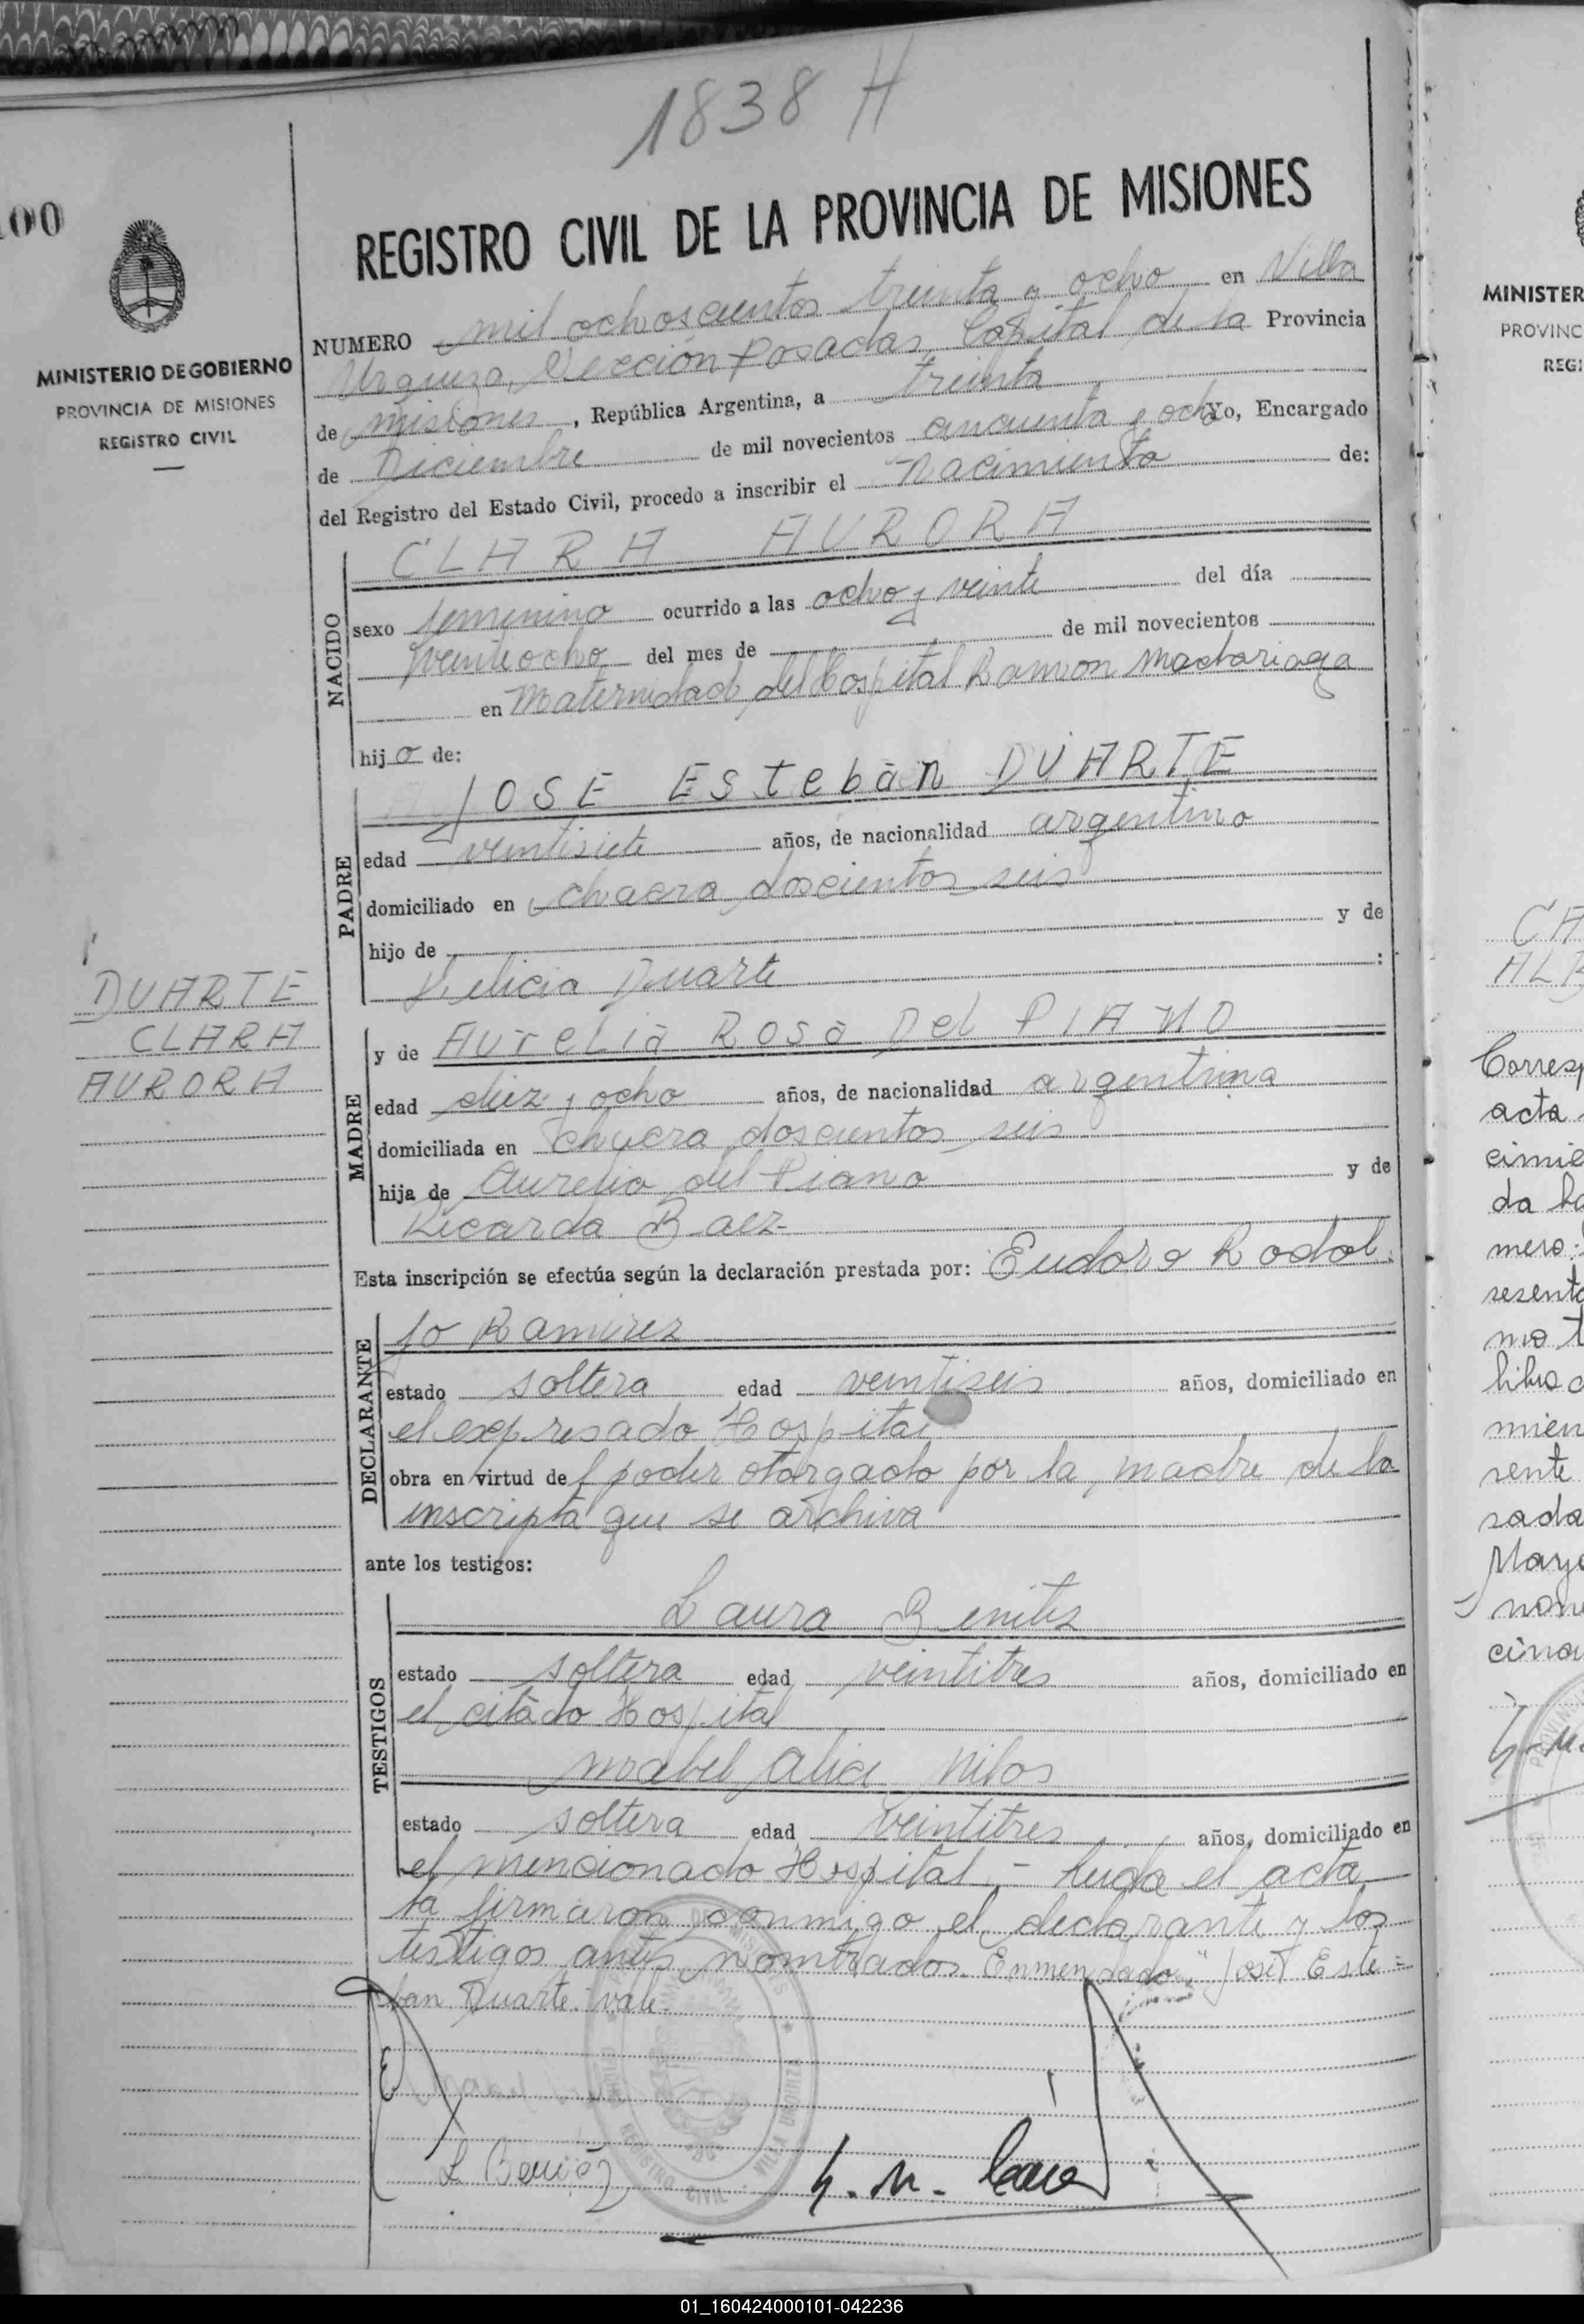 1838 H
100
REGISTRO CIVIL DE LA PROVINCIA DE MISIONES
MINISTERIO DE GOBIERNO
PROVINCIA DE MISIONES
REGISTRO CIVIL
NUMERO mil ochoscientos treinta y ocho en Villa
Urquiza, Sección Posadas, Capital de la Provincia
de Misiones, República Argentina, a treinta
de Diciembre de mil novecientos cincuenta y ocho Yo, Encargado
del Registro del Estado Civil, procedo a inscribir el Nacimiento de:
NACIDO
CLARA AURORA
sexo femenino ocurrido a las ocho y veinte del día
veinteocho del mes de de mil novecientos
en Maternidad del Hospital Ramon Madariaga
hijo de:
PADRE
JOSE Esteban DUARTE
edad veintisiete años, de nacionalidad argentino
domiciliado en chacra doscientos seis
hijo de y de
Felicia Duarte :
DUARTE
CLARA
AURORA
MADRE
y de Aurelia Rosa Del PIANO
edad diez y ocho años, de nacionalidad argentina
domiciliada en chacra doscientos seis
hija de Aurelio del Piano y de
Ricarda Baez
Esta inscripción se efectúa según la declaración prestada por: Eudoro Rodol
DECLARANTE
fo Ramirez
estado soltera edad veintiseis años, domiciliado en
el expresado Hospital
obra en virtud del poder otorgado por la madre de la
inscripta que se archiva
ante los testigos:
TESTIGOS
Laura Benitez
estado soltera edad veintitres años, domiciliado en
el citado Hospital
Mabel Alicia
estado soltera edad veintitres años, domiciliado en
el mencionado Hospital.- Leida el acta
la firmaron conmigo el declarante y los
testigos antes nombrados. Enmendado: "José Este=
ban Duarte". Vale.
L Benitez
REGISTRO CIVIL
VILLA URQUIZA
MINISTER
PROVINC
REGI
CA
ALB
Corresp
acta
cimie
da
mero:
sesenta
mo
libro
mien
sente
sada
Mayo
nove
cinco
01_160424000101-042236